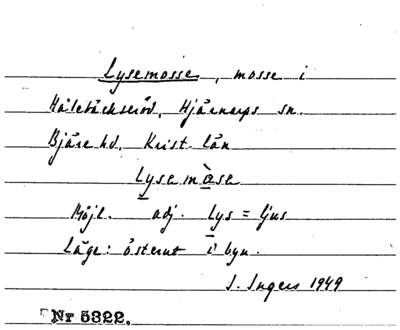 Lysemosse, mosse i
Hålebäckseröd, Hjärnarps sn.
Bjäre hd, Krist. län
Lysemåse
Möjl. adj. lys = ljus
Läge: österut i byn.
I. Ingers 1949
Nr 5322.